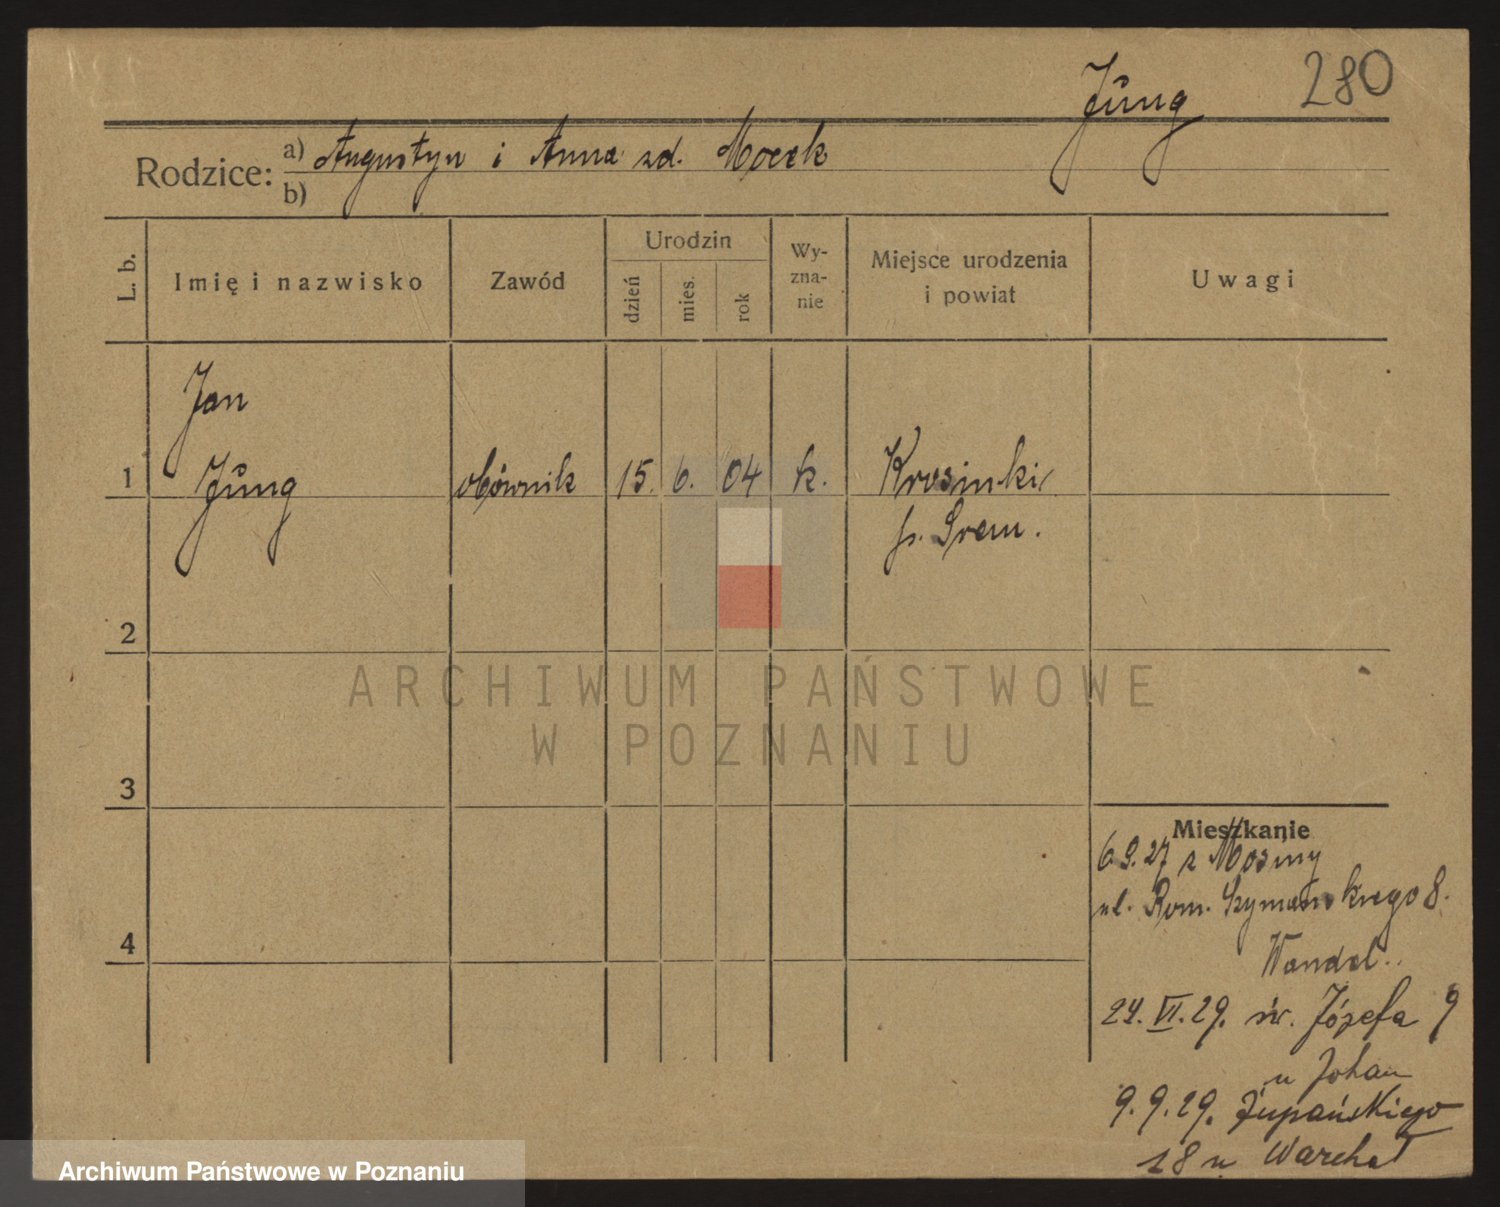 280
Jüng
Rodzice: a) Augustyn i Anna zd. Mocek
b)
L. b.
Imię i nazwisko
Zawód
Urodzin
dzień
mies.
rok
Wy-
zna-
nie
Miejsce urodzenia
i powiat
Uwagi
Jan
1 Jüng obównik 15. 6. 04 k. Krosinki
p. Śrem.
2
3
4
ARCHIWUM PAŃSTWOWE
W POZNANIU
Mieszkanie
6 9. 27 z Mosiny
ul. Rom. Szymańskiego 8.
Wandel..
24. VI. 29. św. Józefa 9
u Johan
9. 9. 29. Żupańskiego
18 u Warchoł
Archiwum Państwowe w Poznaniu